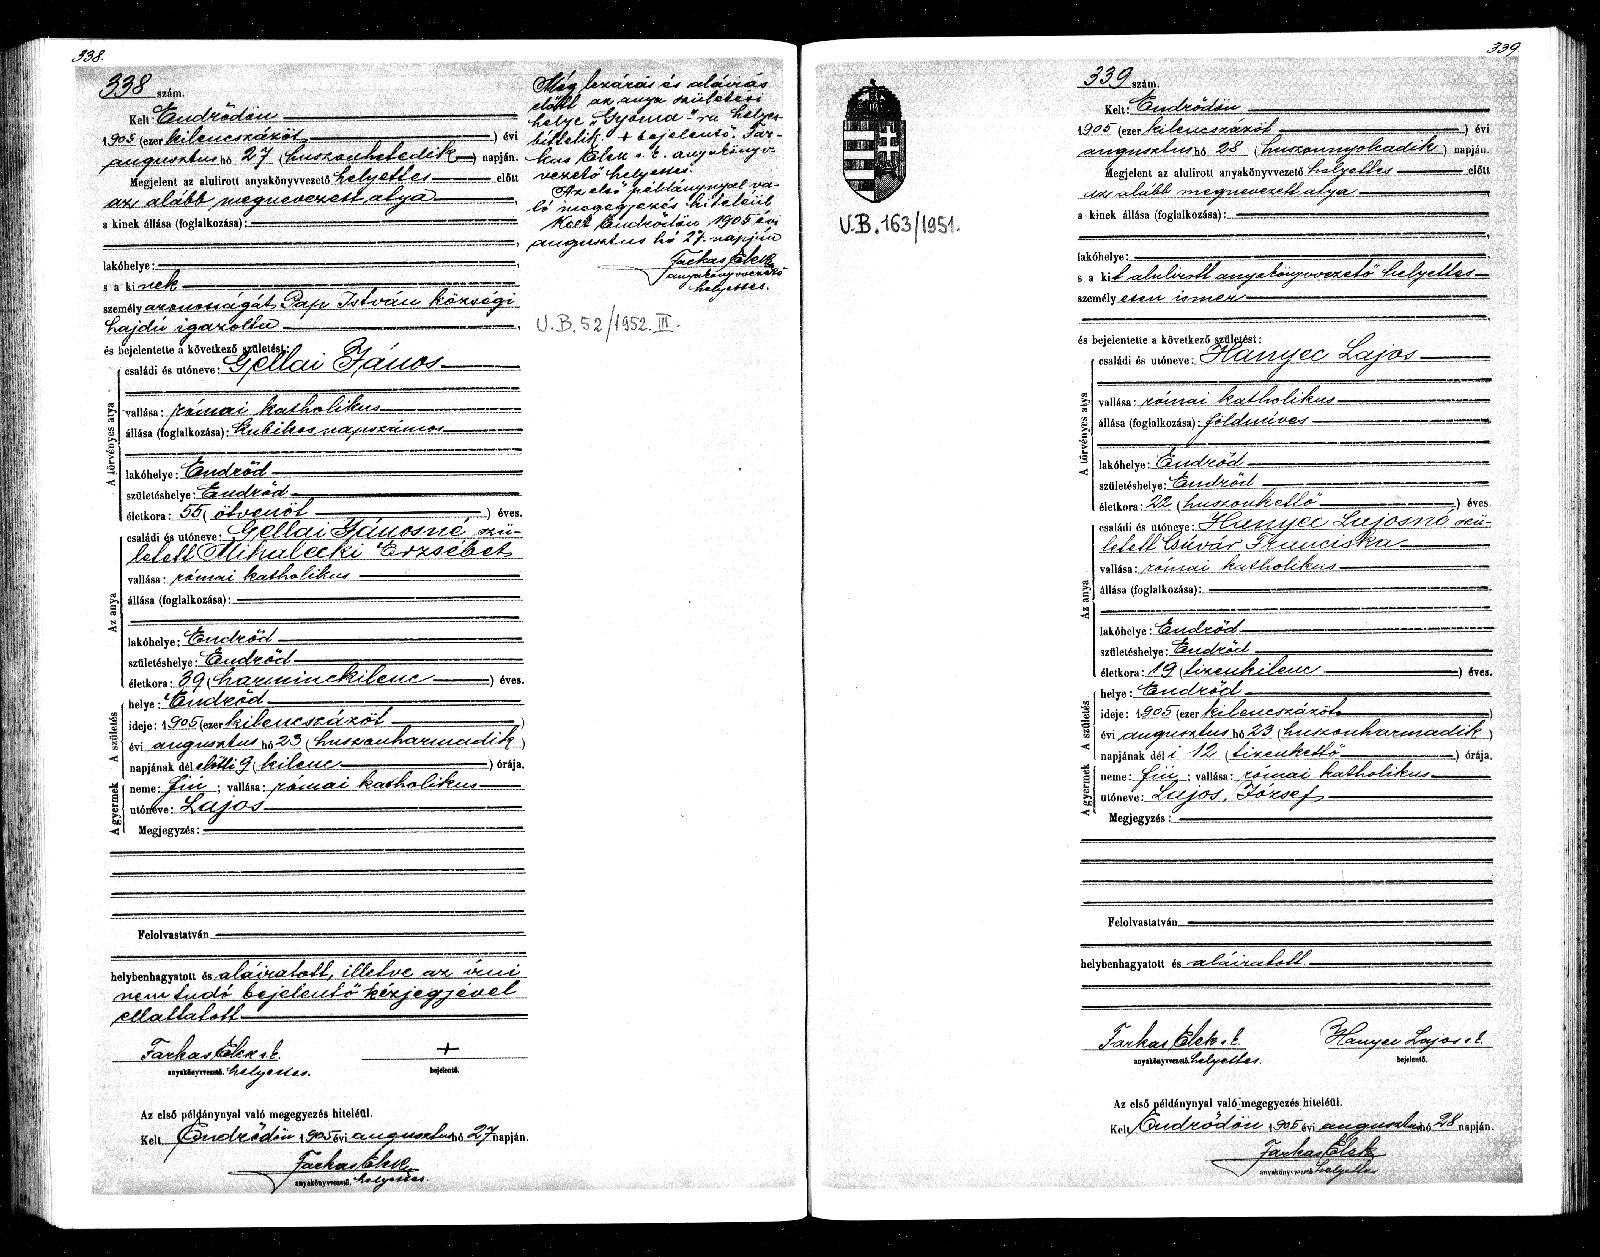 338.
338 szám.
Kelt Endrődön
1905 (ezer kilencszázöt) évi
augusztus hó 27 (huszonhetedik) napján.
Megjelent az alulirott anyakönyvvezető helyettes előtt
az alább megnevezett atya
a kinek állása (foglalkozása):
lakóhelye:
s a kinek
személyazonosságát Pap István községi
hajdú igazolta
és bejelentette a következő születést:
A törvényes atya
családi és utóneve: Gellai János
vallása: római katholikus
állása (foglalkozása): kubikos napszámos
lakóhelye: Endrőd
születéshelye: Endrőd
életkora: 55 (ötvenöt) éves.
Az anya
családi és utóneve: Gellai Jánosné, szü-
letett Mihalecki Erzsébet
vallása: római katholikus
állása (foglalkozása):
lakóhelye: Endrőd
születéshelye: Endrőd
életkora: 39 (harminckilenc) éves.
A születés
helye: Endrőd
ideje: 1905 (ezer kilencszázöt)
évi augusztus hó 23 (huszonharmadik)
napjának dél előtti 9 (kilenc) órája.
A gyermek
neme: fiú; vallása: római katholikus
utóneve: Lajos
Megjegyzés:
Felolvastatván
helybenhagyatott és aláiratott, illetve az irni
nem tudó bejelentő kézjegyével
elláttatott
Farkas Elek s. k. +
anyakönyvvezető helyettes. bejelentő.
Az első példánynyal való megegyezés hiteléül.
Kelt Endrődön 1905 évi augusztus hó 27 napján.
Farkas Elek
anyakönyvvezető helyettes.
Még lezárás és aláirás
előtt az anya születési
helye „Gyoma"-ra helyes-
bittetik + bejelentő. Far-
kas Elek s. k. anyakönyv-
vezető helyettes.
Az első példánynyal va-
ló megegyezés hiteléül
Kelt Endrődön 1905 évi
augusztus hó 27. napján
Farkas Elek
anyakönyvvezető
helyettes.
U.B. 52/1952. III.
339.
U.B. 163/1951.
339 szám.
Kelt: Endrődön
1905 (ezer kilencszázöt) évi
augusztus hó 28 (huszonnyolcadik) napján.
Megjelent az alulirott anyakönyvvezető helyettes előtt
az alább megnevezett atya
a kinek állása (foglalkozása):
lakóhelye:
s a kit alulirott anyakönyvvezető helyettes
személyesen ismer
és bejelentette a következő születést:
A törvényes atya
családi és utóneve: Hanyec Lajos
vallása: római katholikus
állása (foglalkozása): földmíves
lakóhelye: Endrőd
születéshelye: Endrőd
életkora: 22 (huszonkettő) éves.
Az anya
családi és utóneve: Hanyec Lajosné szü-
letett Csúvár Franciska
vallása: római katholikus
állása (foglalkozása):
lakóhelye: Endrőd
születéshelye: Endrőd
életkora: 19 (tizenkilenc) éves.
A születés
helye: Endrőd
ideje: 1905 (ezer kilencszázöt)
évi augusztus hó 23 (huszonharmadik)
napjának dél i 12 (tizenkettő) órája.
A gyermek
neme: fiú; vallása: római katholikus
utóneve: Lajos, József
Megjegyzés:
Felolvastatván
helybenhagyatott és aláiratott.
Farkas Elek s. k. Hanyec Lajos s. k.
anyakönyvvezető helyettes. bejelentő.
Az első példánynyal való megegyezés hiteléül.
Kelt Endrődön 1905 évi augusztus hó 28 napján.
Farkas Elek
anyakönyvvezető helyettes